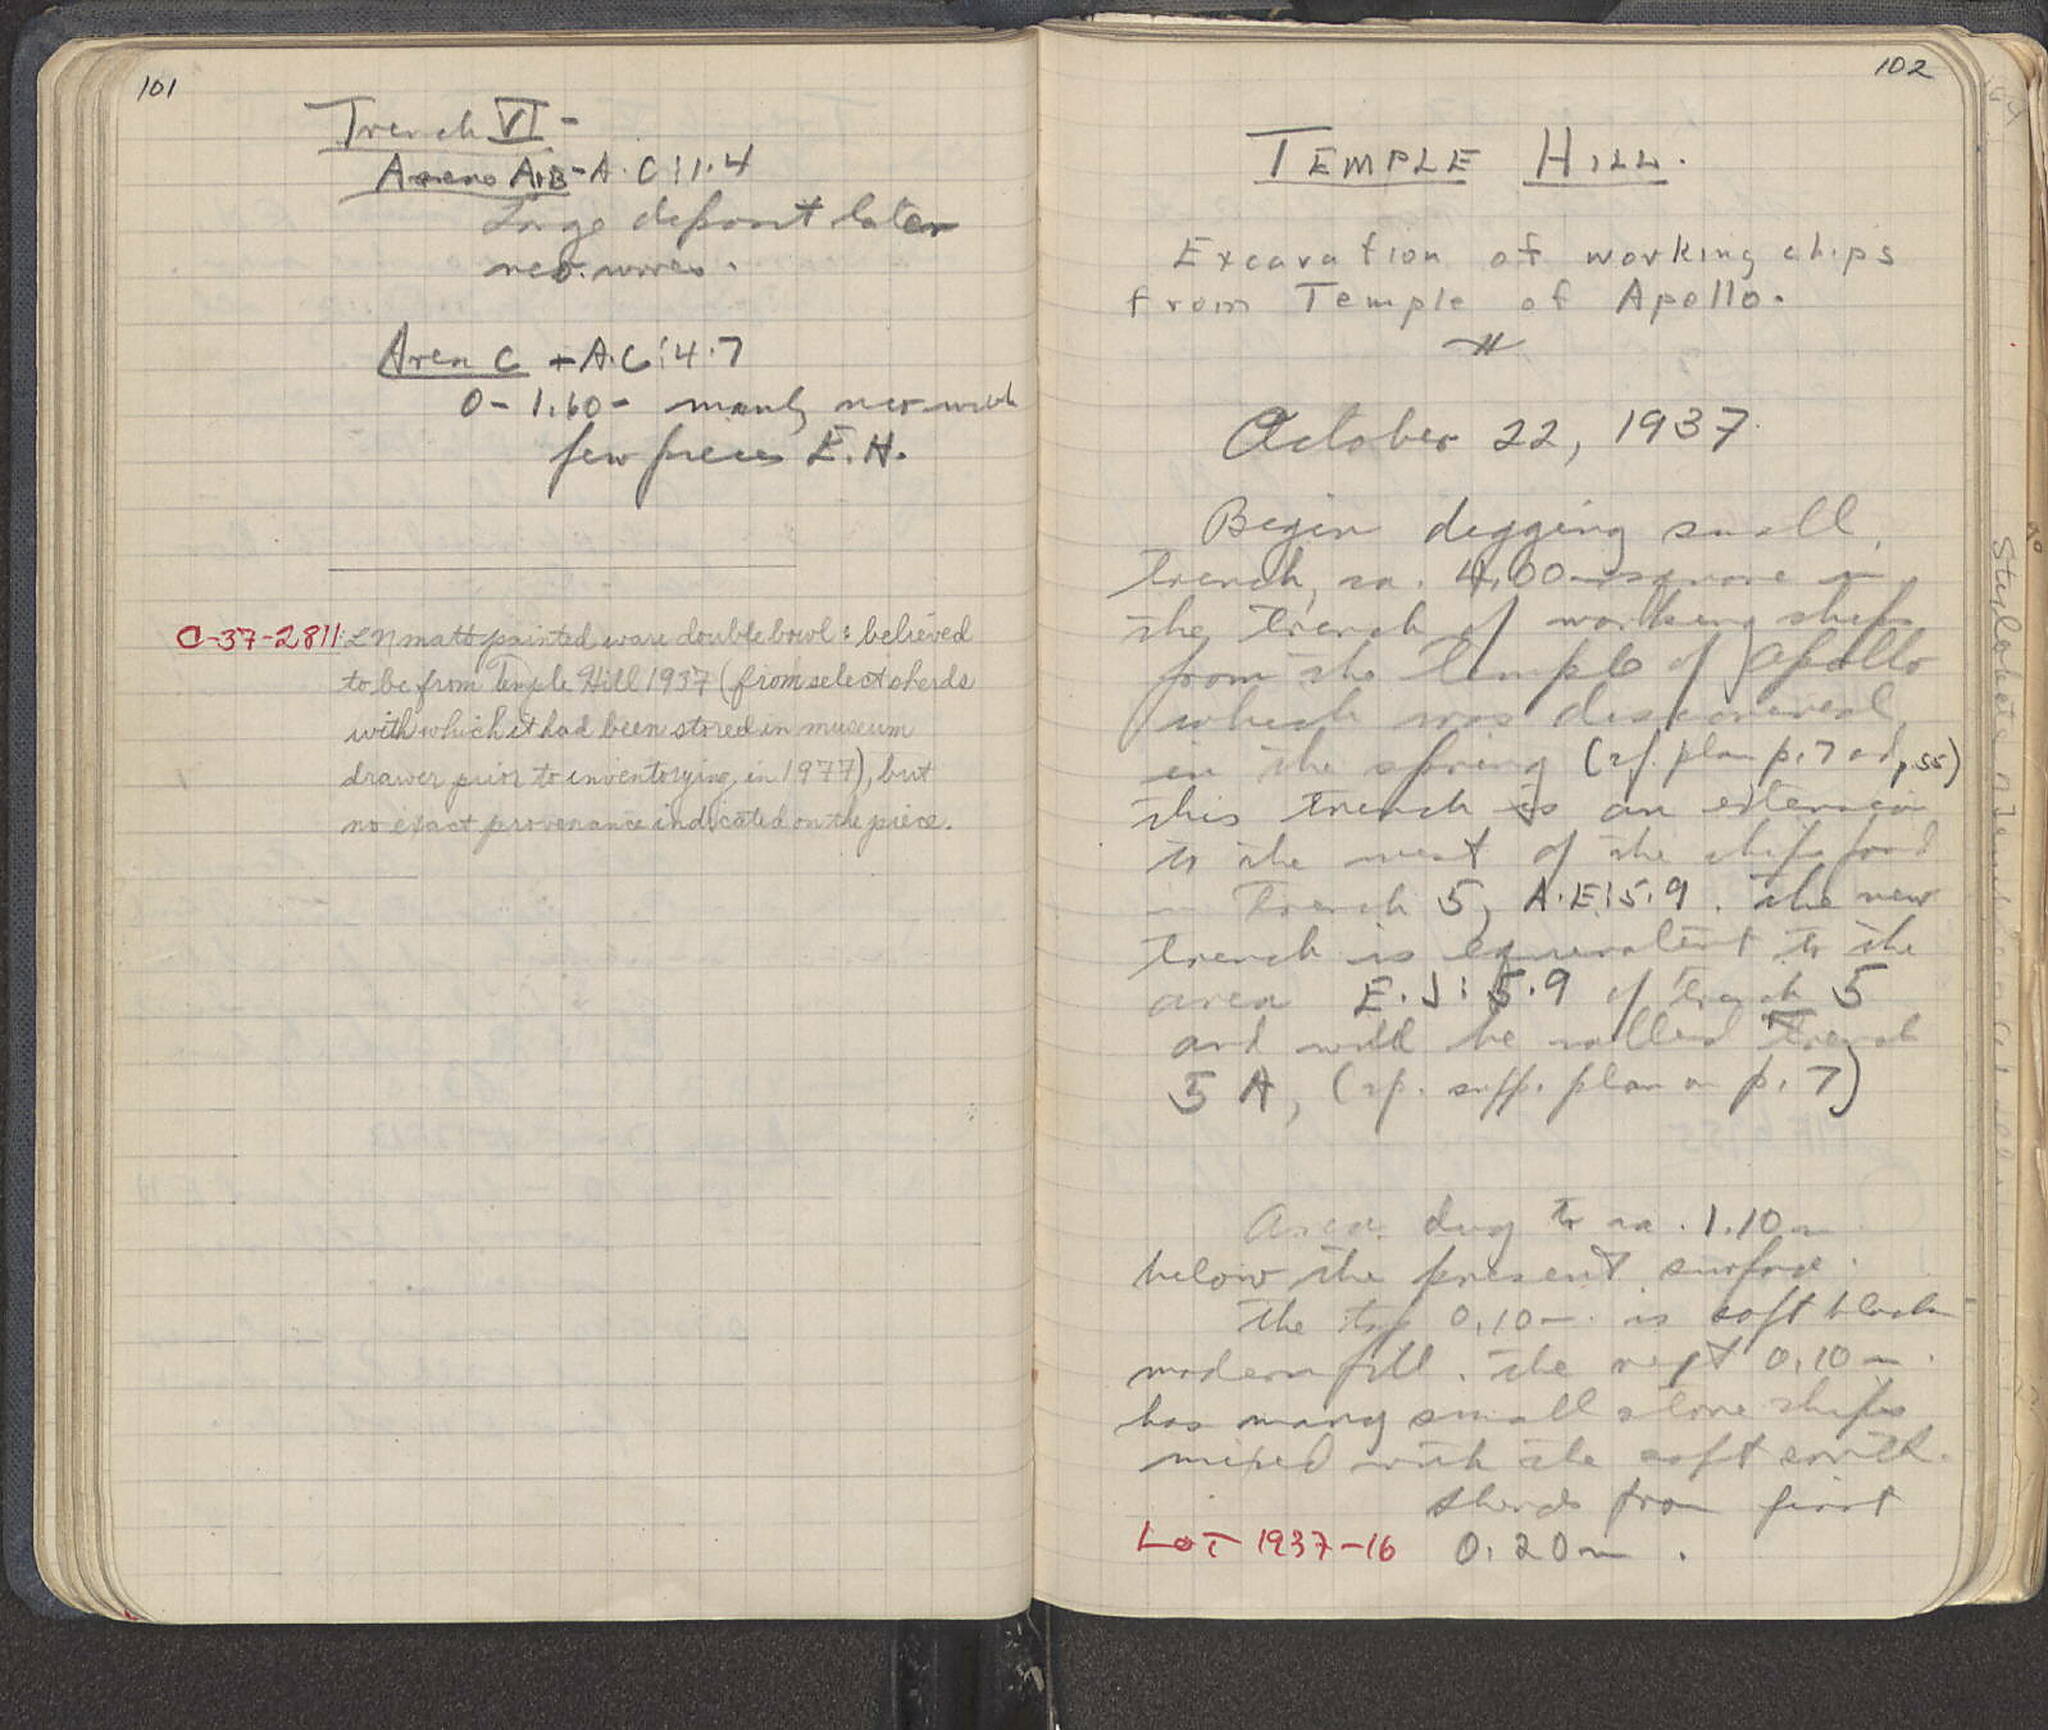 101
Trench VI -
Areas A,B - A.C:1.4
Large deposit later
neo. wares.
Area C + A.C:4.7
0 - 1.60 - mainly neo. with
few pieces E.H.
C-37-2811: LN matt painted ware double bowl: believed
to be from Temple Hill 1937 (from select sherds
with which it had been stored in museum
drawer prior to inventorying in 1977), but
no exact provenance indicated on the piece.
102
TEMPLE HILL.
Excavation of working chips
from Temple of Apollo.
October 22, 1937.
Begin digging small
trench, ca. 4.00 m square in
the trench of working chips
from the Temple of Apollo
which was discovered
in the spring (cf. plan p. 7 and p. 55)
this trench is an extension
to the west of the chips found
in Trench 5, A.E:5.9. The new
trench is equivalent to the
area E.J:5.9 of Trench 5
and will be called Trench
5 A, (cf. supp. plan on p. 7)
Area dug to ca. 1.10 m
below the present surface.
The top 0.10 m. is soft black
modern fill. The next 0.10 m.
has many small stone chips
mixed with the soft earth.
Sherds from first
LOT 1937-16 0.20 m.